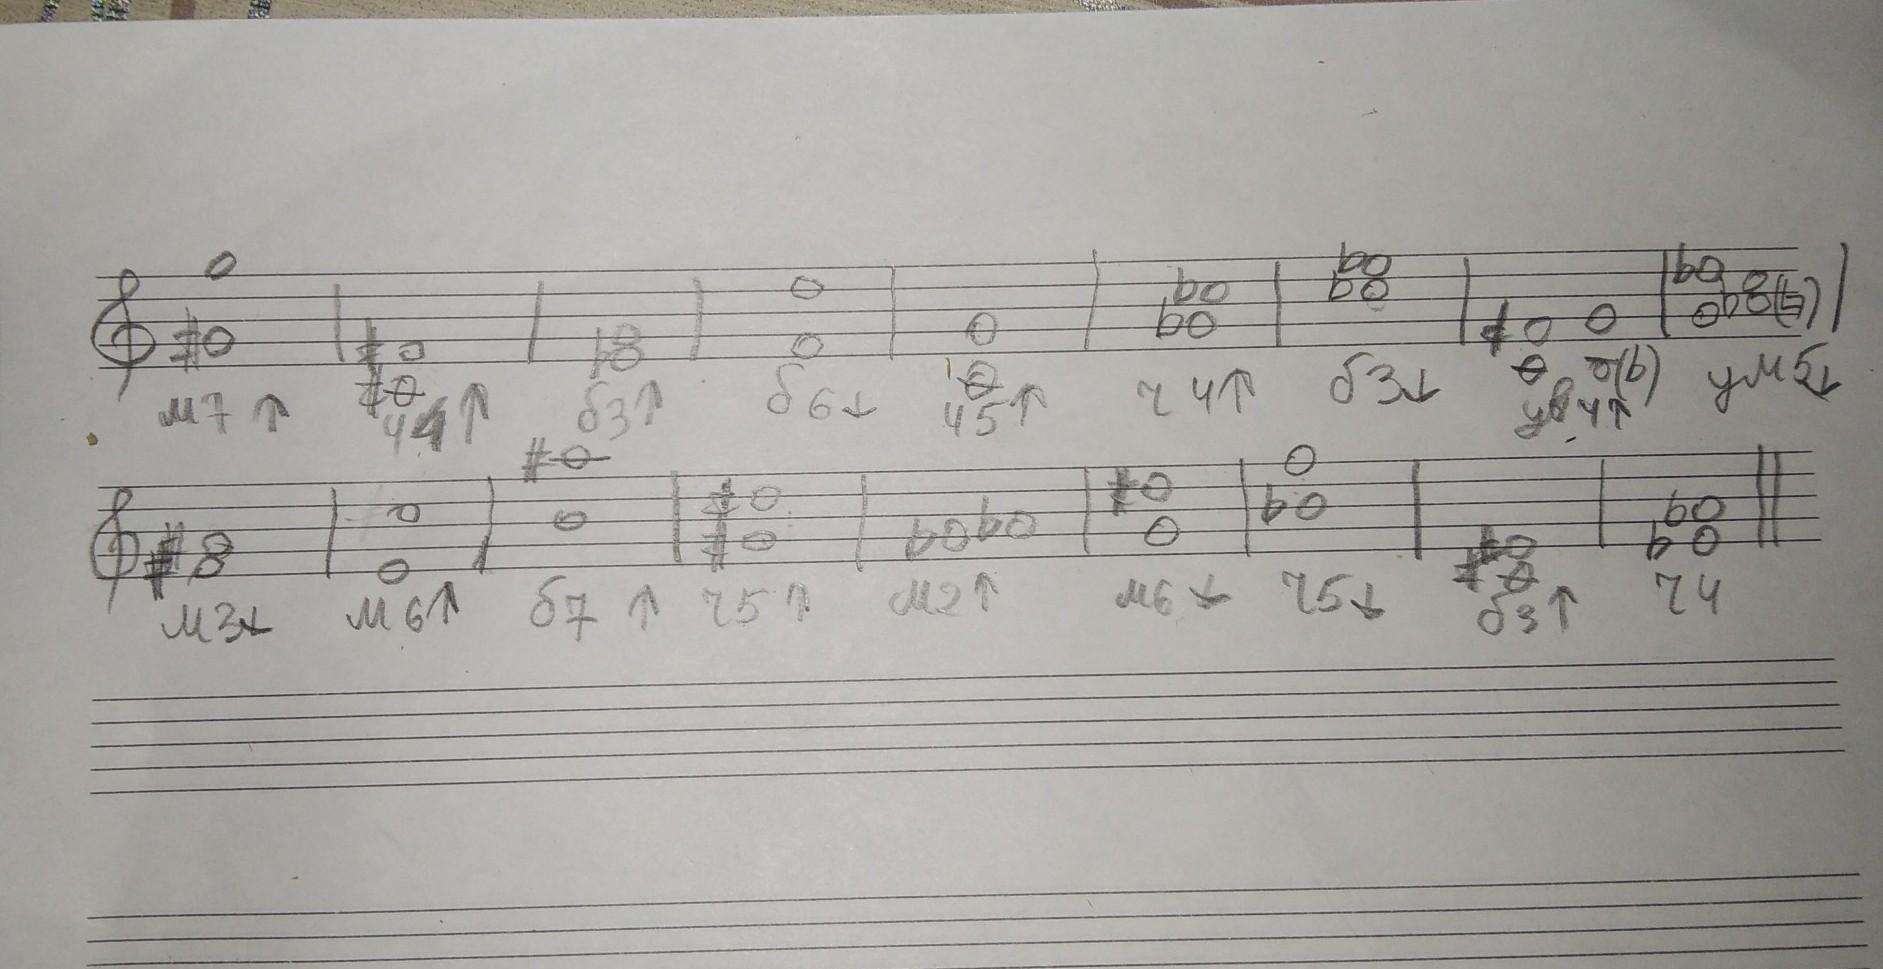 м7↑ ч4↑ б3↑ б6↓ ч5↑ ч4↑ б3↓ ув4↑ ум5↓
м3↓ м6↑ б7↑ ч5↑ м2↑ м6↓ ч5↓ б3↑ ч4